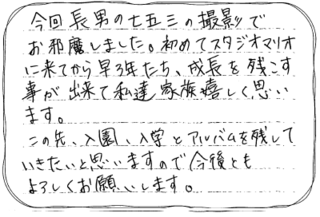 今回長男の七五三の撮影で
お邪魔しました。初めてスタジオマリオ
に来てから早3年たち、成長を残こす
事が出来て私達家族嬉しく思い
ます。
この先、入園、入学とアルバムを残して
いきたいと思いますので今後とも
よろしくお願いします。